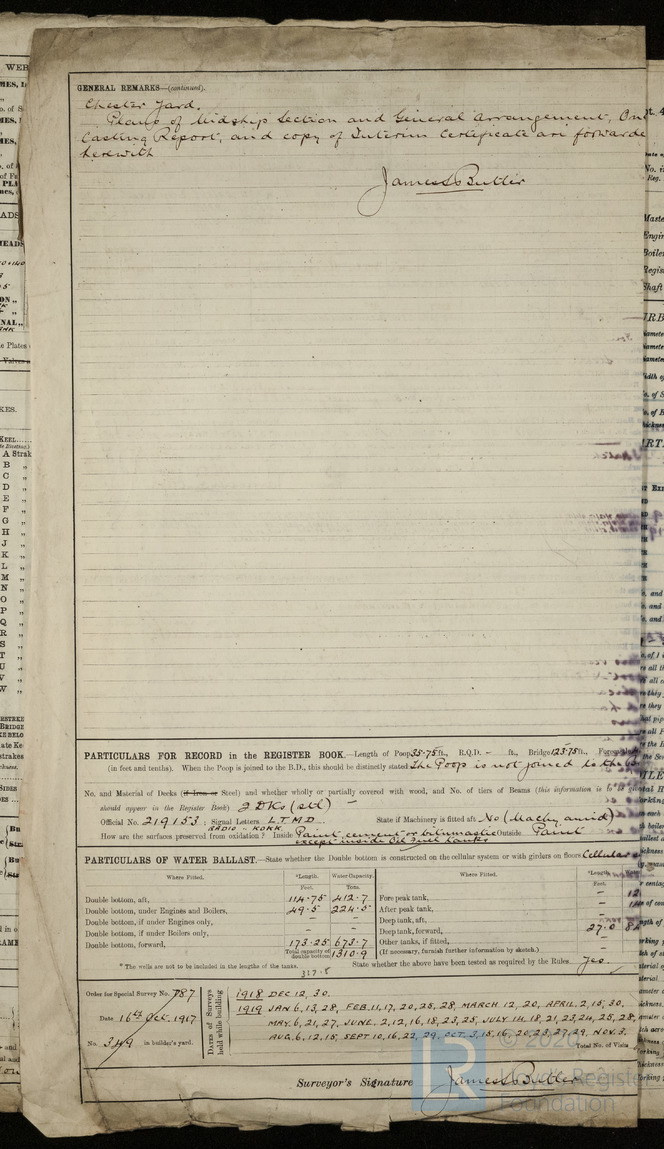 GENERAL REMARKS—(continued).
Chester Yard.
Plans of Midship Section and General Arrangement, One
Casting Report, and copy of Interim Certificate are forwarde
herewith
James S Butler
PARTICULARS FOR RECORD in the REGISTER BOOK.—Length of Poop 35·75 ft., R.Q.D. - ft., Bridge 123·75 ft.,
(in feet and tenths). When the Poop is joined to the B.D., this should be distinctly stated The Poop is not joined to the
No. and Material of Decks (if Iron or Steel) and whether wholly or partially covered with wood, and No. of tiers of Beams (this information is to
should appear in the Register Book) 2 DKs (stl) -
Official No. 219153 ; Signal Letters L.T.M.D. State if Machinery is fitted aft No (Machy amid)
RADIO - KDKK
How are the surfaces preserved from oxidation? Inside Paint cement or bitumastic Outside Paint
except inside Oil Fuel tanks
PARTICULARS OF WATER BALLAST.—State whether the Double bottom is constructed on the cellular system or with girders on floors Cellular
Where Fitted. *Length. Water Capacity. Where Fitted. *Length.
Feet. Tons. Feet.
Double bottom, aft, 114·75 412·7 Fore peak tank, -
Double bottom, under Engines and Boilers, 49·5 224·5 After peak tank, -
Double bottom, if under Engines only, - - Deep tank, aft, -
Double bottom, if under Boilers only, - - Deep tank, forward, 27·0
Double bottom, forward, 173·25 673·7 Other tanks, if fitted, -
Total capacity of double bottom 1310·9 (If necessary, furnish further information by sketch.)
* The wells are not to be included in the lengths of the tanks. State whether the above have been tested as required by the Rules Yes.
Order for Special Survey No. 787
Date 16th Oct. 1917
No. 349 in builder's yard.
Dates of Surveys held while building
1918 DEC 12, 30.
1919 JAN 6, 13, 28, FEB. 11, 17, 20, 25, 28, MARCH 12, 20, APRIL 2, 15, 30,
MAY. 6, 21, 27, JUNE. 2, 12, 16, 18, 23, 25, JULY 14, 18, 21, 23, 24, 25, 28,
AUG. 6, 12, 15, SEPT 10, 16, 22, 29, OCT. 3, 15, 16, 20, 23, 27, 29, NOV. 3.
Total No. of Visits
Surveyor's Signature James S Butler
© 2020
Lloyd's Register
Foundation